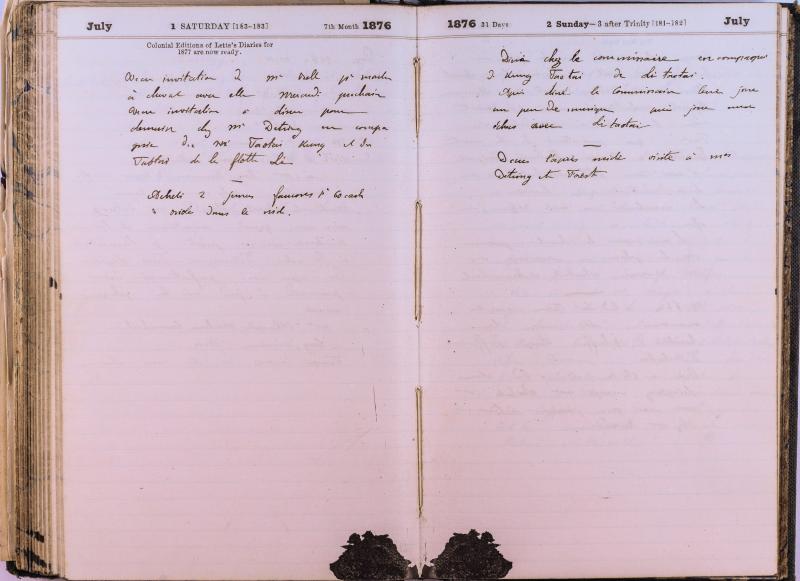 July 1 SATURDAY [183-183] 7th Month 1876
Colonial Editions of Letts's Diaries for
1877 are now ready.
invitation Mr pr monter
à cheval avec elle Mercredi prochain
invitation à diner pour
demain chez Mr Detring en compa
gnie de Taotai Kung et du
Taotai de la flotte Li
—
Acheté 2 jeunes 60 cash
dans le nid.
1876 31 Days 2 Sunday—3 after Trinity [184-182] July
Diné chez le commissaire en compagnie
d Kung Taotai de Li taotai.
Après diné le Commissaire leur joue
un peu de musique puis joue aux
échecs avec Li taotai
—
Dans l'après midi visite à mrs
Detring et